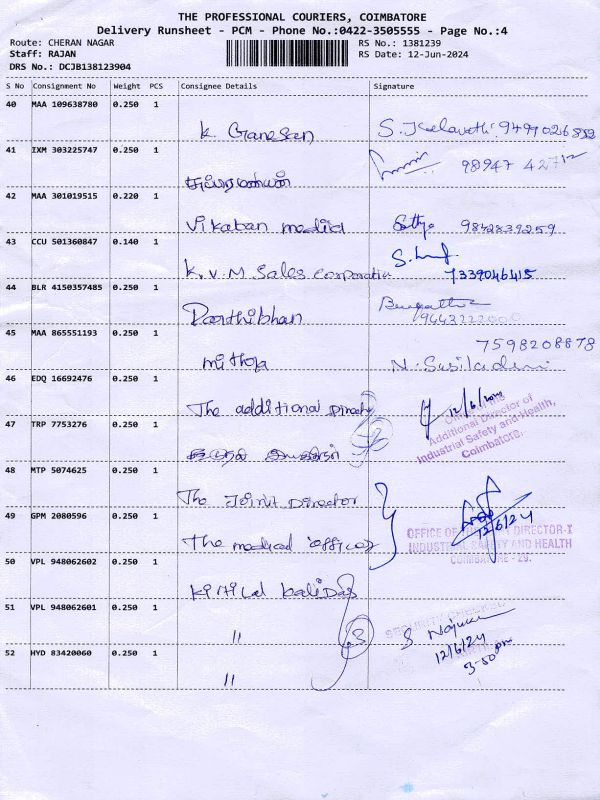 THE PROFESSIONAL COURIERS, COIMBATORE
Delivery Runsheet - PCM - Phone No.:0422-3505555 - Page No.:4
Route: CHERAN NAGAR
RS No.: 1381239
Staff: RAJAN
RS Date: 12-Jun-2024
DRS No.: DCJB138123904
S No Consignment No Weight PCS Consignee Details Signature
40 MAA 109638780 0.250 1
K. Ganesan
41 IXM 303225747 0.250 1
98947 42712
42 MAA 301019515 0.220 1
Vikatan media Sathya 9842839259
43 CCU 501360847 0.140 1
K.V.M Sales corporation 7339046415
44 BLR 4150357485 0.250 1
Parthibhan
45 MAA 865551193 0.250 1
7598208878
46 EDQ 16692476 0.250 1
The additional Director 12/6/2024
Additional Director of
Industrial Safety and Health,
Coimbatore.
47 TRP 7753276 0.250 1
48 MTP 5074625 0.250 1
The Joint Director
49 GPM 2080596 0.250 1
12/6/24
OFFICE OF DIRECTOR-I
INDUSTRIAL SAFETY AND HEALTH
COIMBATORE - 29.
The medical officer
50 VPL 948062602 0.250 1
51 VPL 948062601 0.250 1
"
12/6/24
3-50pm
52 HYD 83420060 0.250 1
"